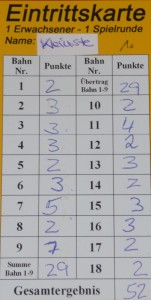 Eintrittskarte
1 Erwachsener - 1 Spielrunde
Name:
Bahn Nr. Punkte Bahn Nr. Punkte
1 2 Übertrag Bahn 1-9 29
2 3 10 2
3 3 11 4
4 3 12 2
5 2 13 3
6 3 14 2
7 5 15 3
8 2 16 3
9 17 2
Summe Bahn 1-9 29 18 2
Gesamtergebnis 52